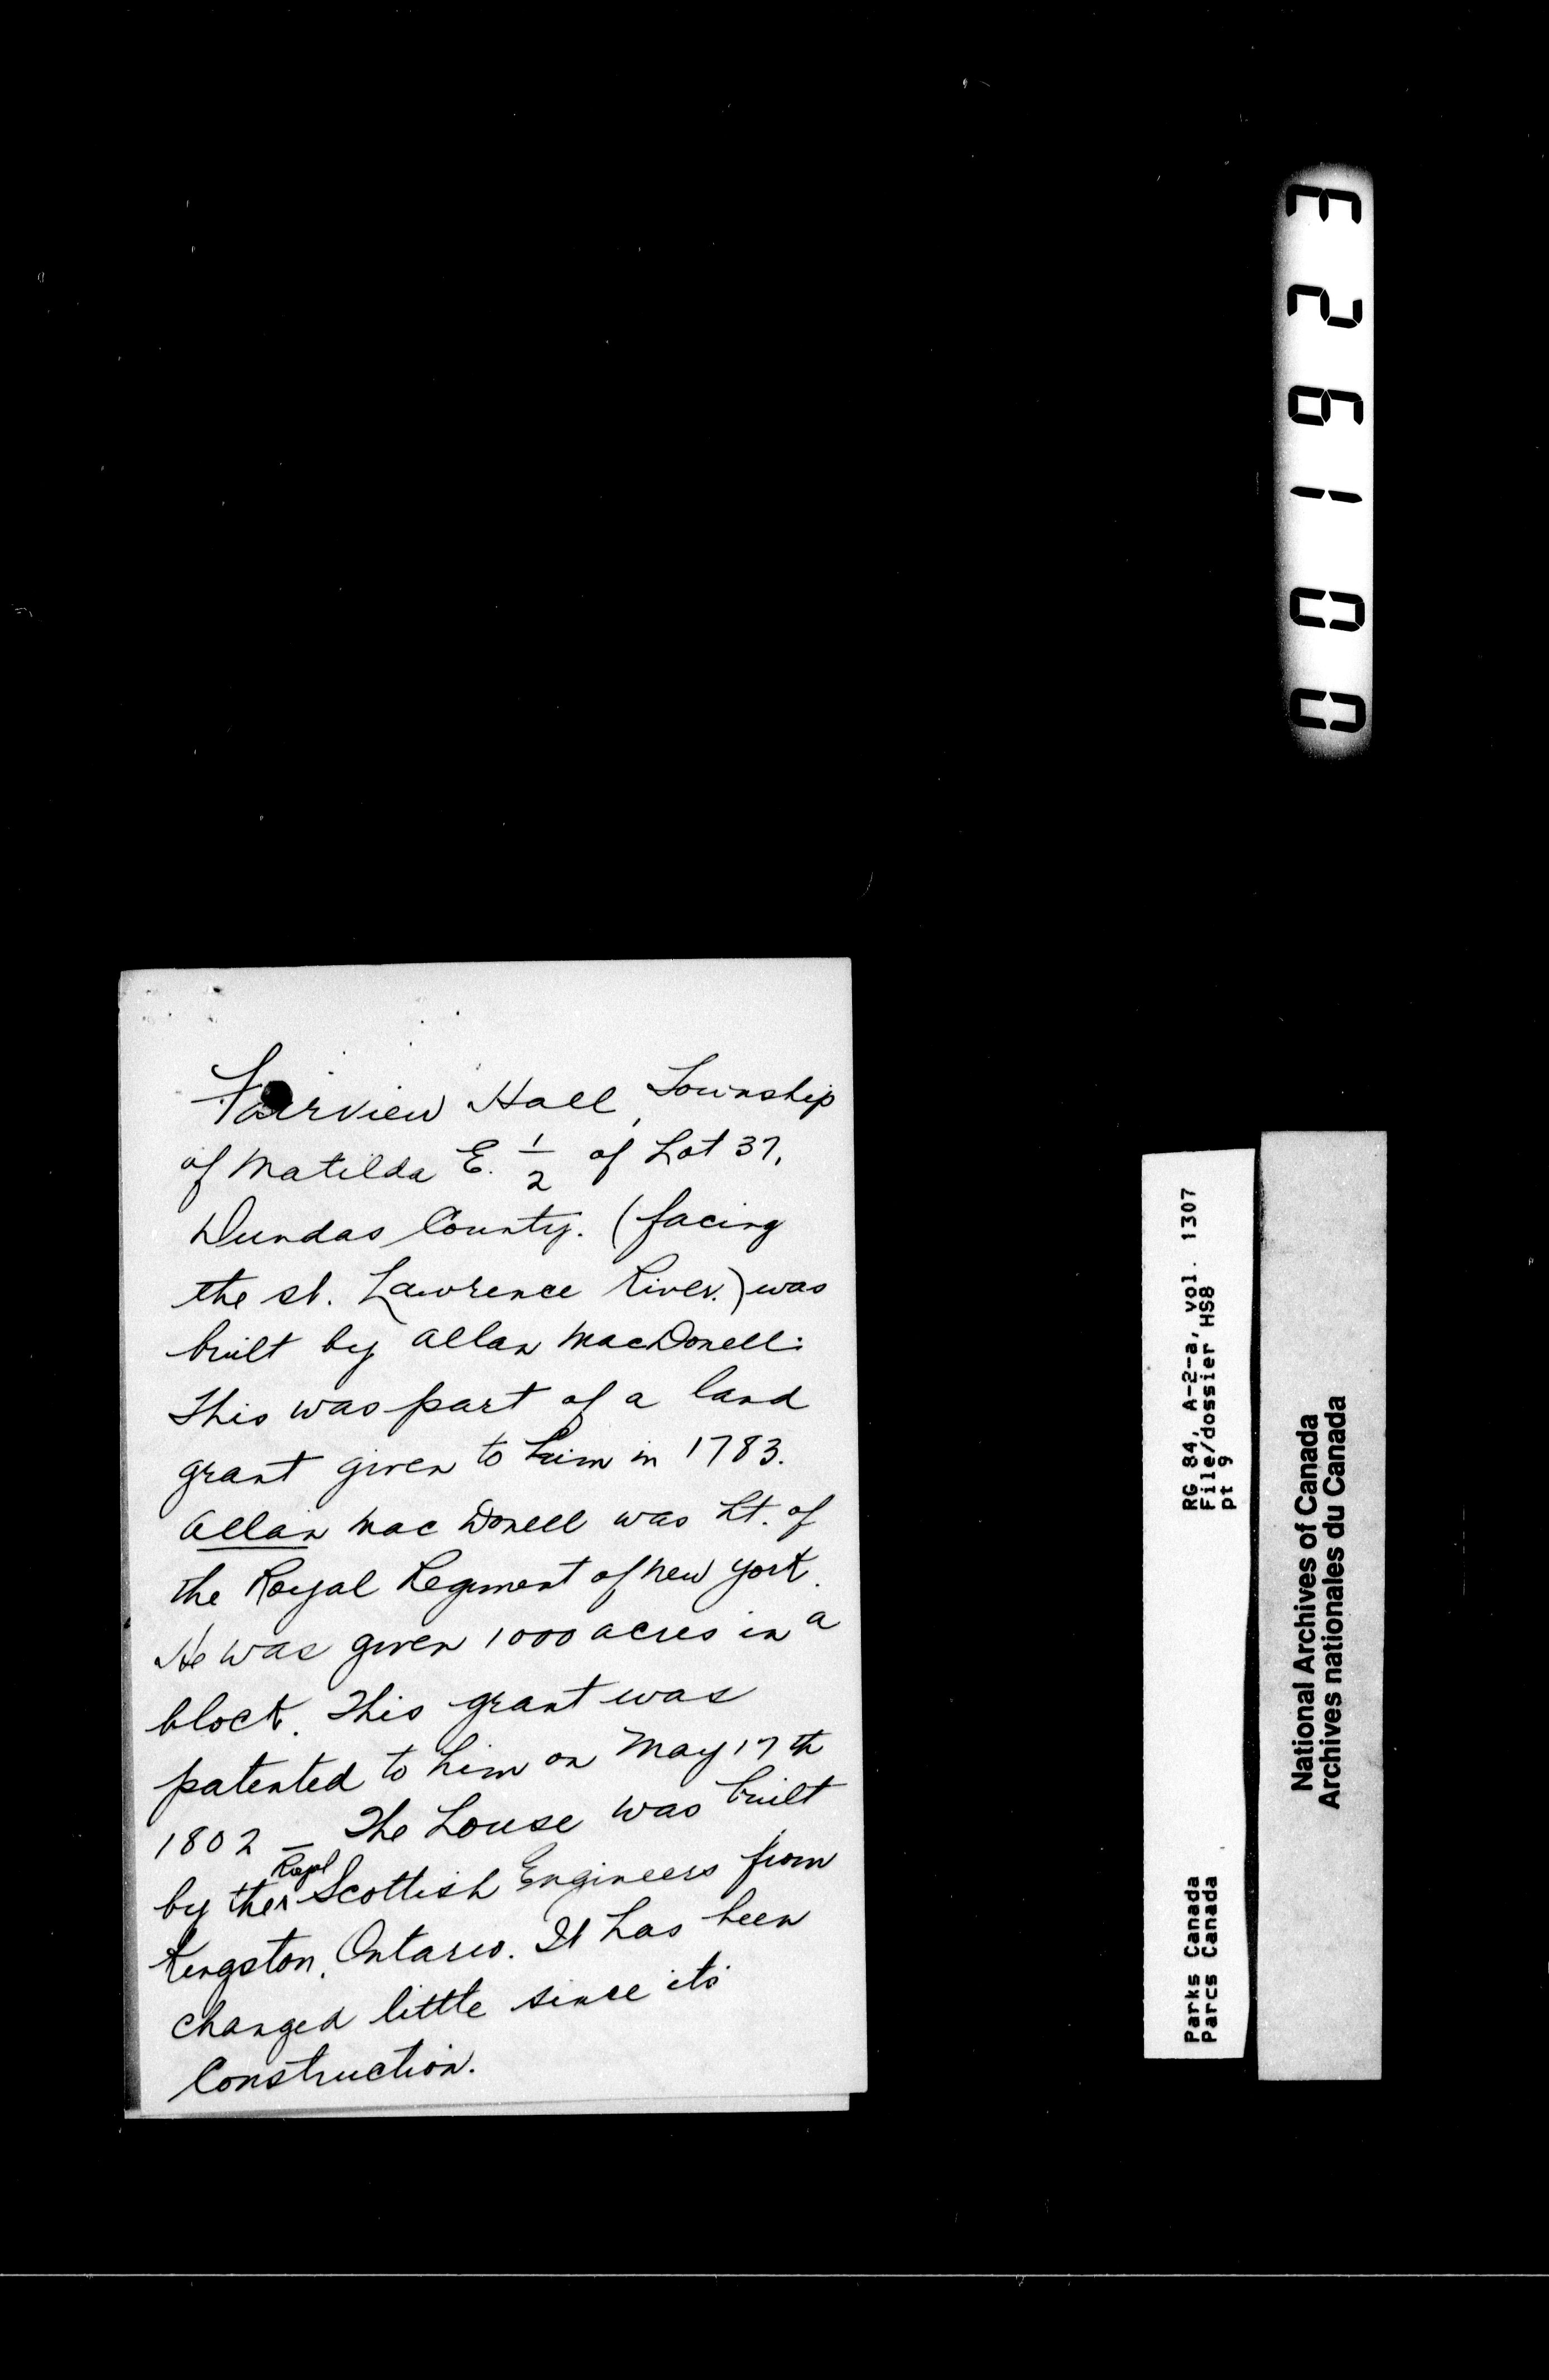 Fairview Hall, Township
of Matilda E. 1/2 of Lot 37,
Dundas County. (facing
the St. Lawrence River.) was
built by Allan MacDonell.
This was part of a land
grant given to him in 1783.
Allan MacDonell was Lt. of
the Royal Regiment of New York.
He was given 1000 acres in a
block. This grant was
patented to him on May 17th
1802 – The house was built
by the Royal Scottish Engineers from
Kingston, Ontario. It has been
changed little since its
Construction.
001623
RG 84, A-2-a, vol. 1307
File/dossier HS8
pt 9
Parks Canada
Parcs Canada
National Archives of Canada
Archives nationales du Canada